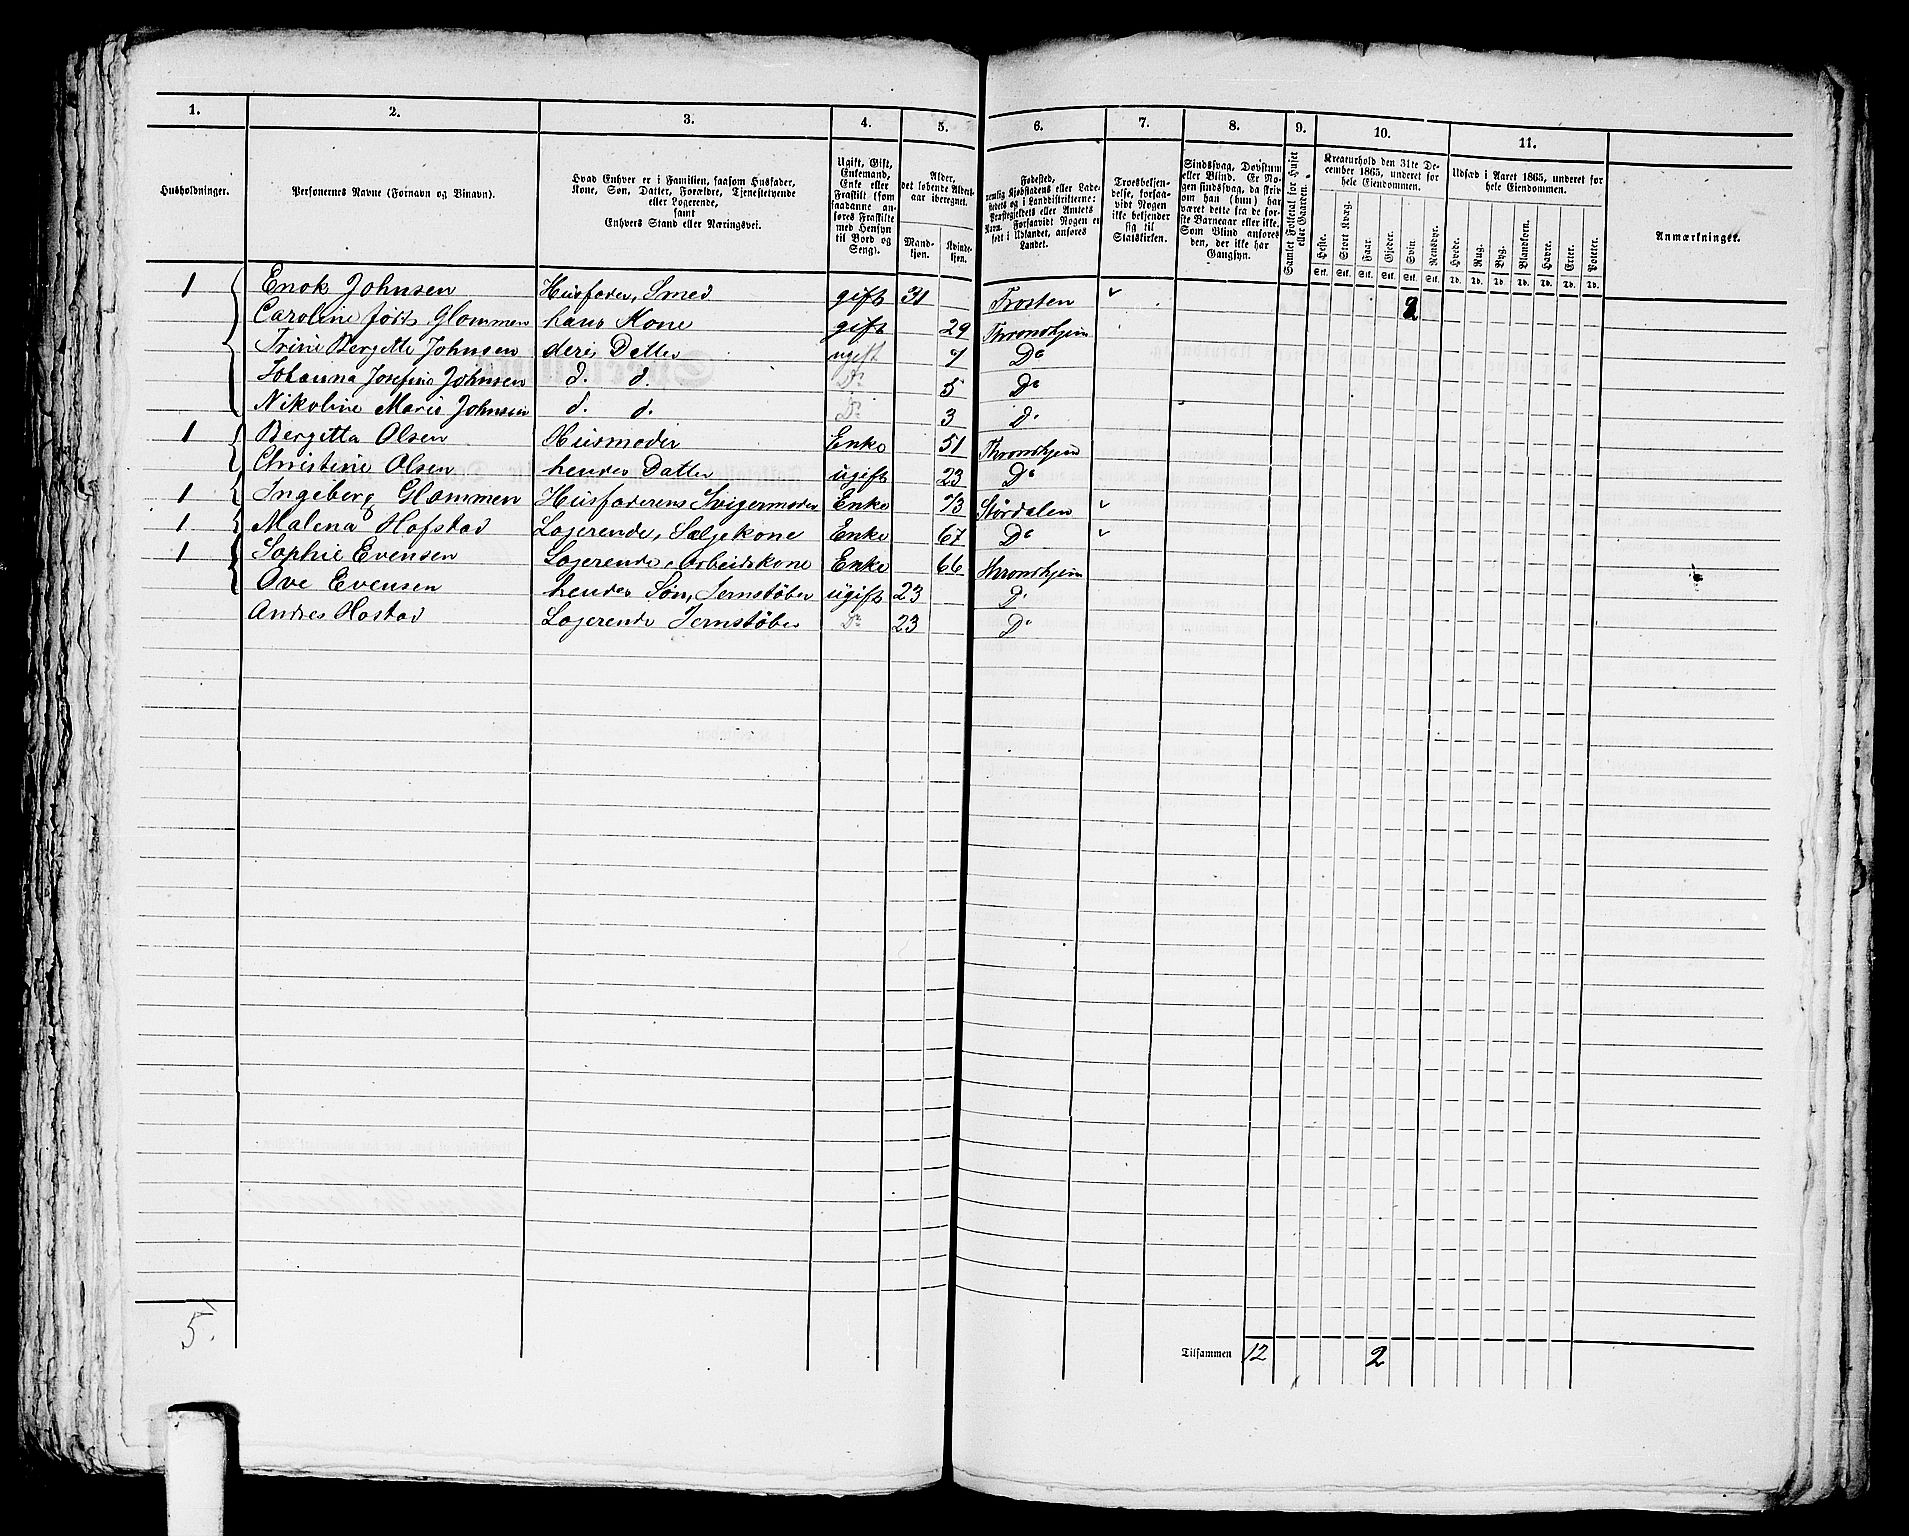 1. 2. 3. 4. 5. 6. 7. 8. 9. 10. 11.
Husholdninger.
Personernes Navne (Fornavn og Binavn).
Hvad Enhver er i Familien, saasom Husfader,
Kone, Søn, Datter, Forældre, Tjenestetyende
eller Logerende,
samt
Enhvers Stand eller Næringsvei.
Ugift, Gift,
Enkemand,
Enke eller
Fraskilt (som
saadanne an-
føres Fraskilte
med Hensyn
til Bord og
Seng).
Alder,
det løbende Alders-
aar iberegnet.
Mand-
kjøn.
Kvinde-
kjøn.
Fødested,
nemlig Kjøbstadens eller Lade-
stedets og i Landdistrikterne:
Præstegjeldets eller Amtets
Navn. Forsaavidt Nogen er
født i Udlandet, anføres
Landet.
Troesbekjen-
delse, forsaa-
vidt Nogen
ikke bekjender
sig til
Statskirken.
Sindssvag, Døvstum
eller Blind. Er No-
gen sindssvag, da skriv
om han (hun) har
været dette fra de før-
ste Barneaar eller ikke.
Som Blind anføres
den, der ikke har
Gangsyn.
Samlet Folketal for Huset
eller Gaarden.
Kreaturhold den 31te De-
cember 1865, underet for
hele Eiendommen.
Heste. Stort Kvæg. Faar. Gjeder. Svin. Rensdyr.
Stk. Stk. Stk. Stk. Stk. Stk.
Udsæd i Aaret 1865, underet for
hele Eiendommen.
Hvede. Rug. Byg. Blandkorn. Havre. Erter. Poteter.
Td. Td. Td. Td. Td. Td. Td.
Anmærkninger.
1 Enok Johnsen Husfader, Smed gift 31 Frosten 2
Caroline født Glommen hans Kone gift 29 Throndhjem
Trine Bergitte Johnsen Datter ugift Do
Johanna Josefine Johnsen d. d. Do 5 Do
Nikoline Marie Johnsen d. d. Do 3 Do
1 Bergitta Olsen Husmoder Enke 51 Throndhjem
Christine Olsen hendes Datter ugift 23 Do
1 Ingeborg Glommen Husfaderens Svigermoder Enke 73 Størdalen
1 Malena Hofstad Logerende, Sælgekone Enke 67 Do
1 Sophie Evensen Logerende, Arbeidskone Enke 66 Throndhjem
Ove Evensen hendes Søn, Jernstøber ugift 23 Do
Andres Hostad Logerende Jernstøber Do 23 Do
5.
Tilsammen 12 2